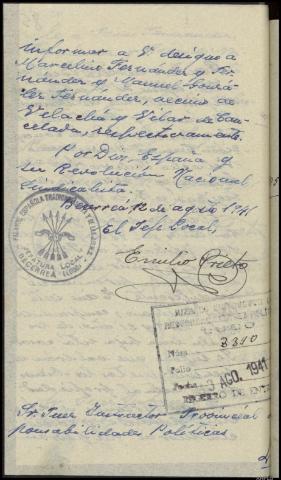 informar a V. designo a
Marcelino Fernández y Fer-
nández y Manuel Gonzá-
lez Fernández, vecinos de
Vilachá y Vilar de Can-
celada, respectivamente.
Por Dios, España y
su Revolución Nacional
Sindicalista.
Becerreá 12 de agosto 1941
El Jefe Local,
Emilio Prieto
FALANGE ESPAÑOLA TRADICIONALISTA Y DE LAS J.O.N.S.
JEFATURA LOCAL
BECERREÁ (LUGO)
3310
Núm.
Folio
Fecha 13 AGO. 1941
REGISTRO DE ENT
Sr. Juez Instructor Provincial
ponsabilidades Políticas